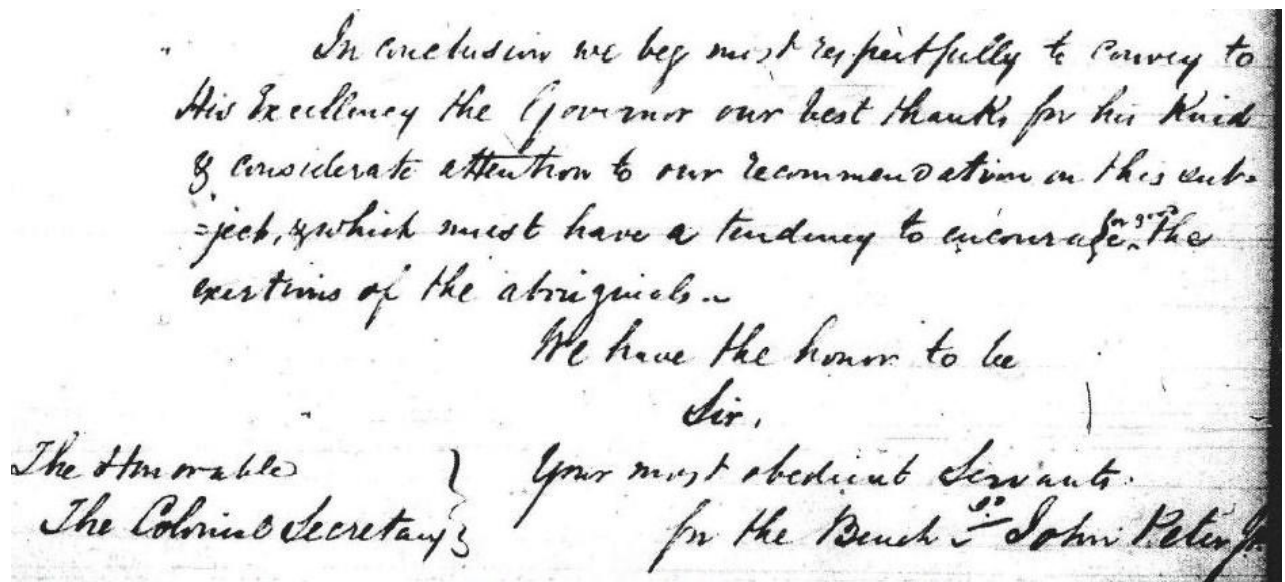 In conclusion we beg most respectfully to convey to
His Excellency the Governor our best thanks for his kind
& considerate attention to our recommendation on this sub=
=ject, & which must have a tendency to encourage the
exertions of the aboriginals.
We have the honor to be
Sir,
The Honorable } Your most obedient Servants.
The Colonial Secretary } for the Bench John Peter